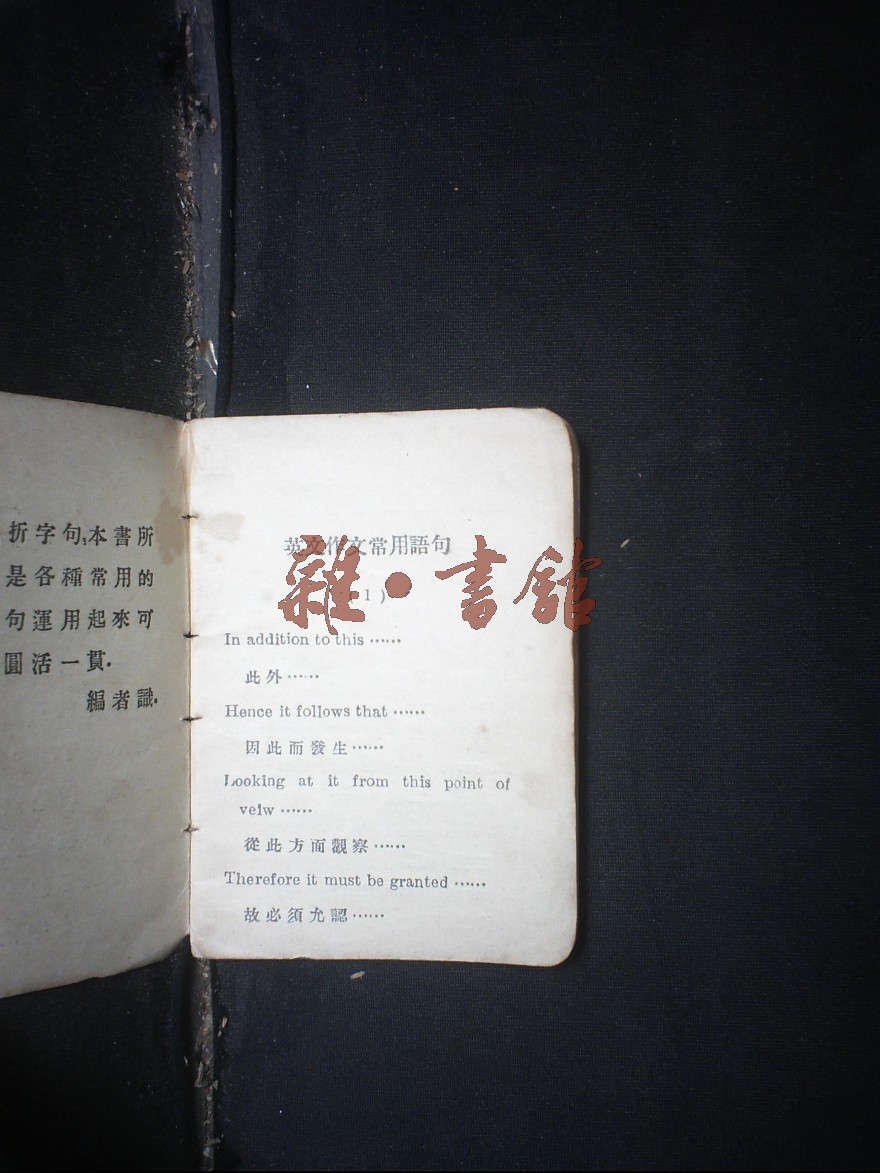 折字句,本書所
是各種常用的
句運用起來可
圓活一貫.
編者識.
英文作文常用語句
( 1 )
雜·書館
In addition to this ……
此外……
Hence it follows that ……
因此而發生……
Looking at it from this point of
veiw ……
從此方面觀察……
Therefore it must be granted ……
故必須允認……